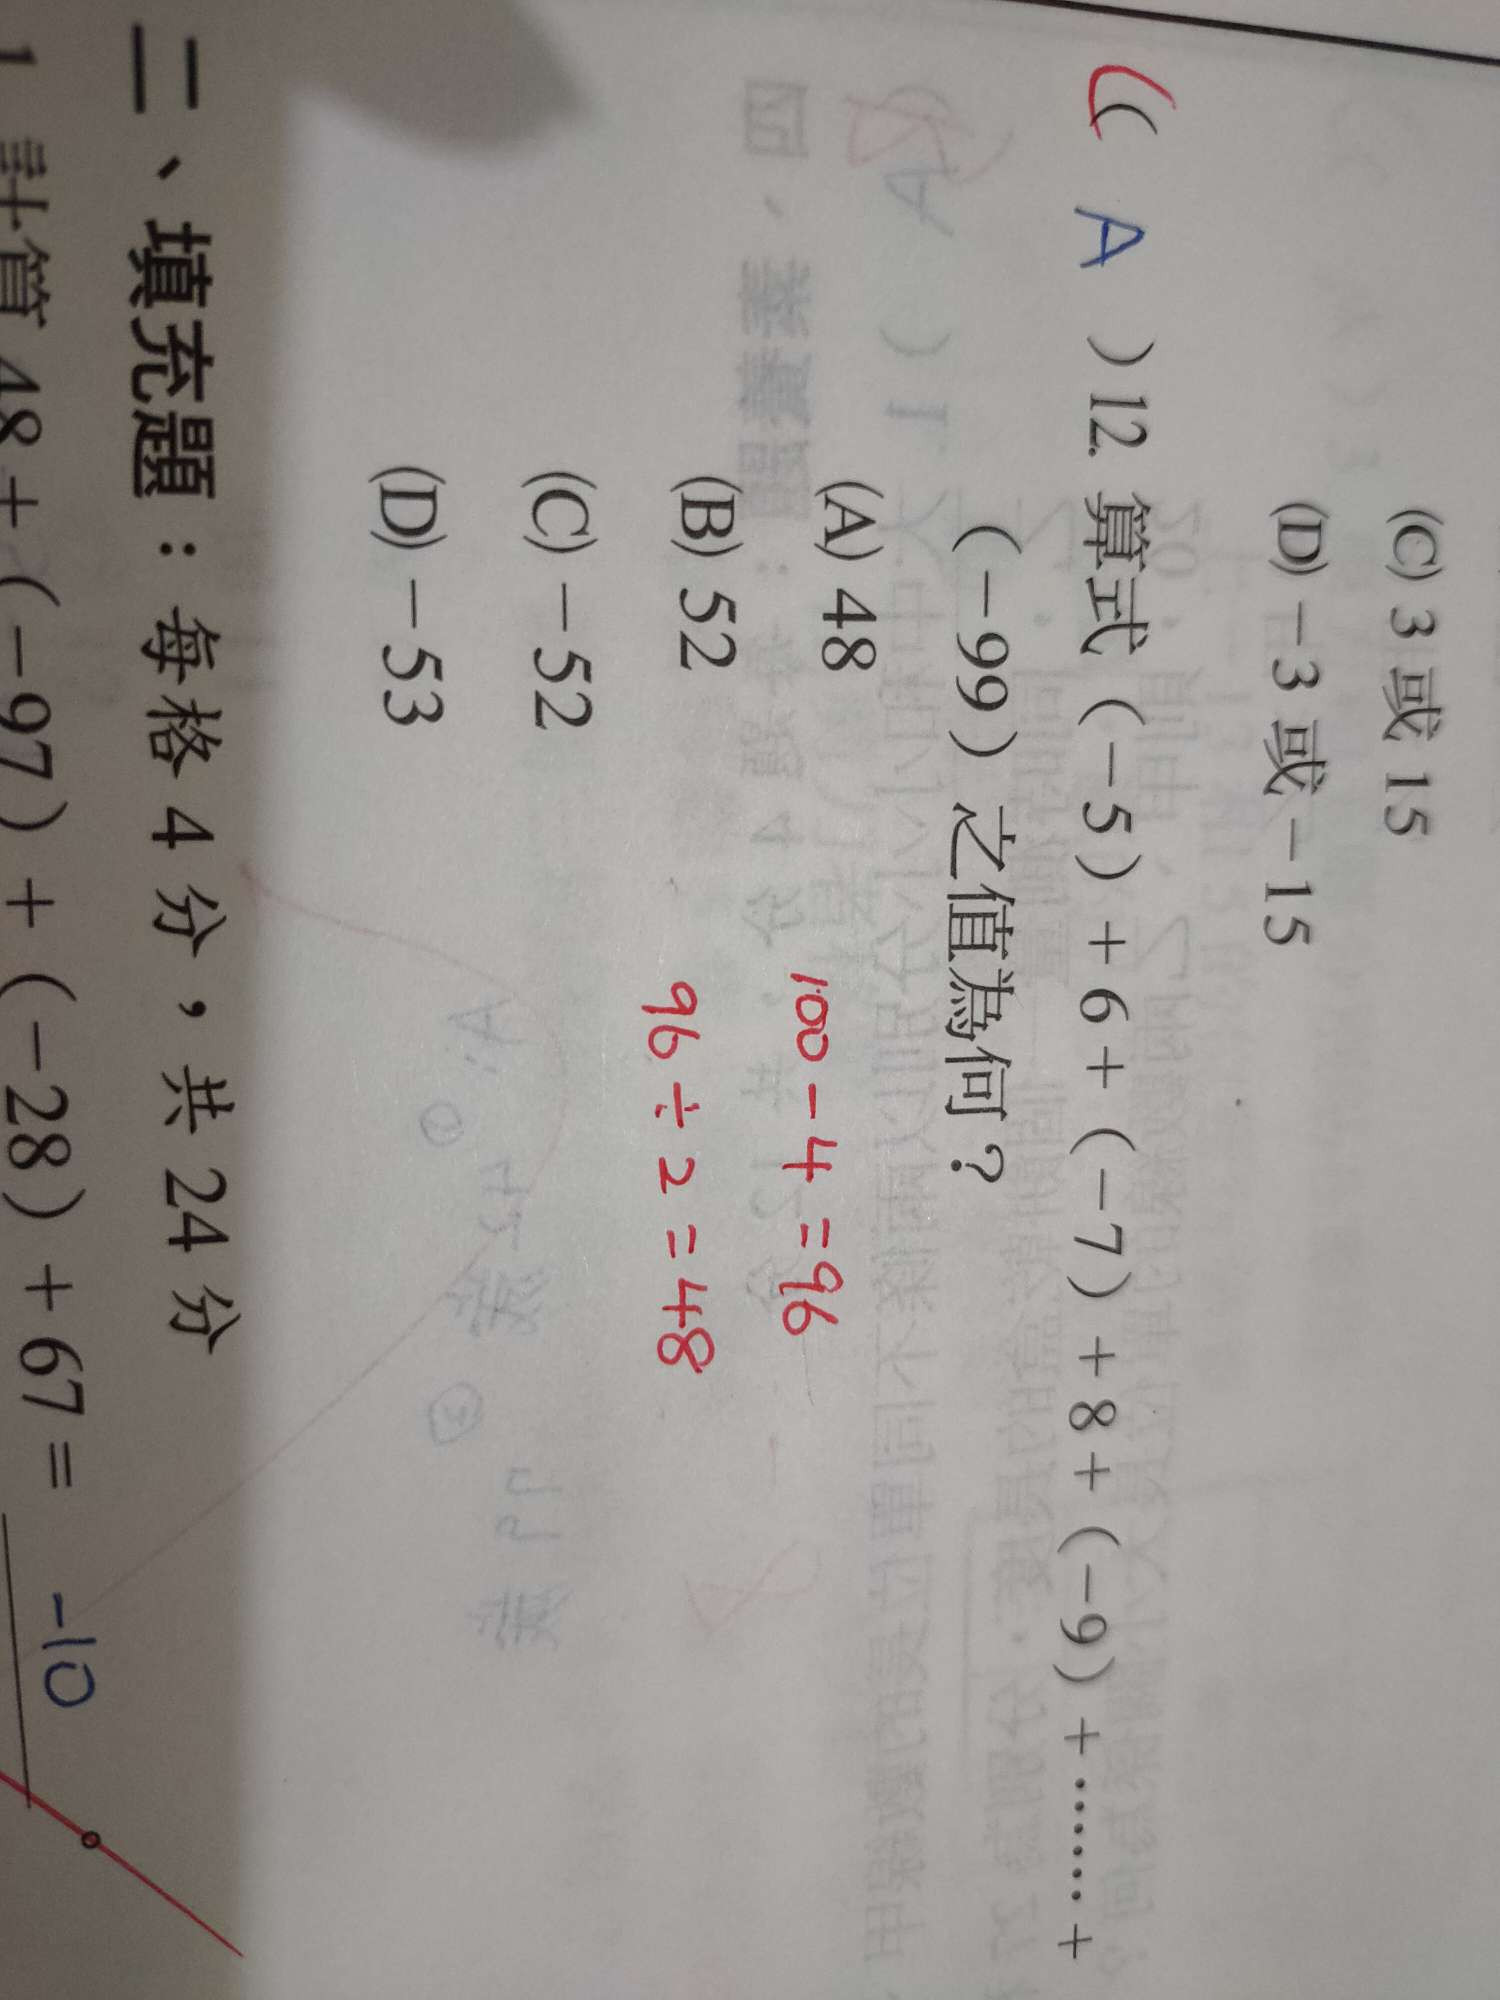 (C) 3 或 15
(D) －3 或 －15
( A ) 12. 算式（－5）＋6＋（－7）＋8＋（－9）＋⋯⋯＋
（－99）之值為何？
(A) 48
(B) 52
(C) －52
(D) －53
100 － 4 ＝ 96
96 ÷ 2 ＝ 48
二、填充題：每格 4 分，共 24 分
1 計算 48＋（－97）＋（－28）＋67＝ －10